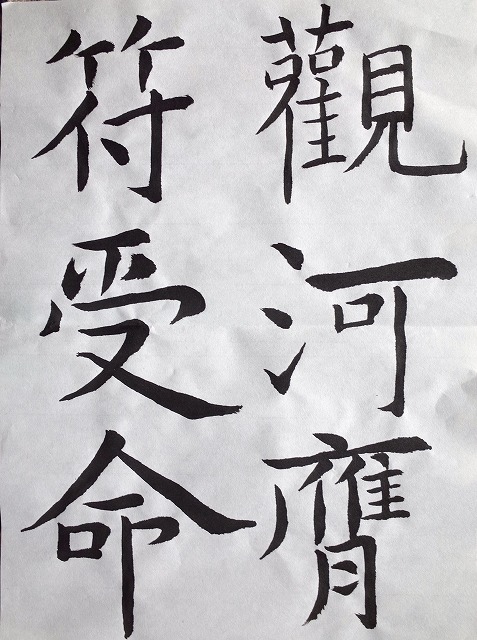 觀河膺
符受命